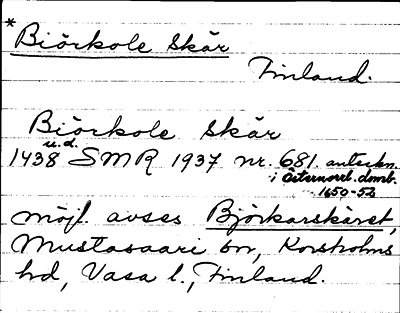 * Biörkole Skär
Finland.
Biörkole Skär
u.d.
1438 SMR 1937 nr. 681. anteckn.
i Östernorrl. domb.
1650-52
möjl. avses Björkarskäret,
Mustasaari sn, Korsholms
hd, Vasa l., Finland.